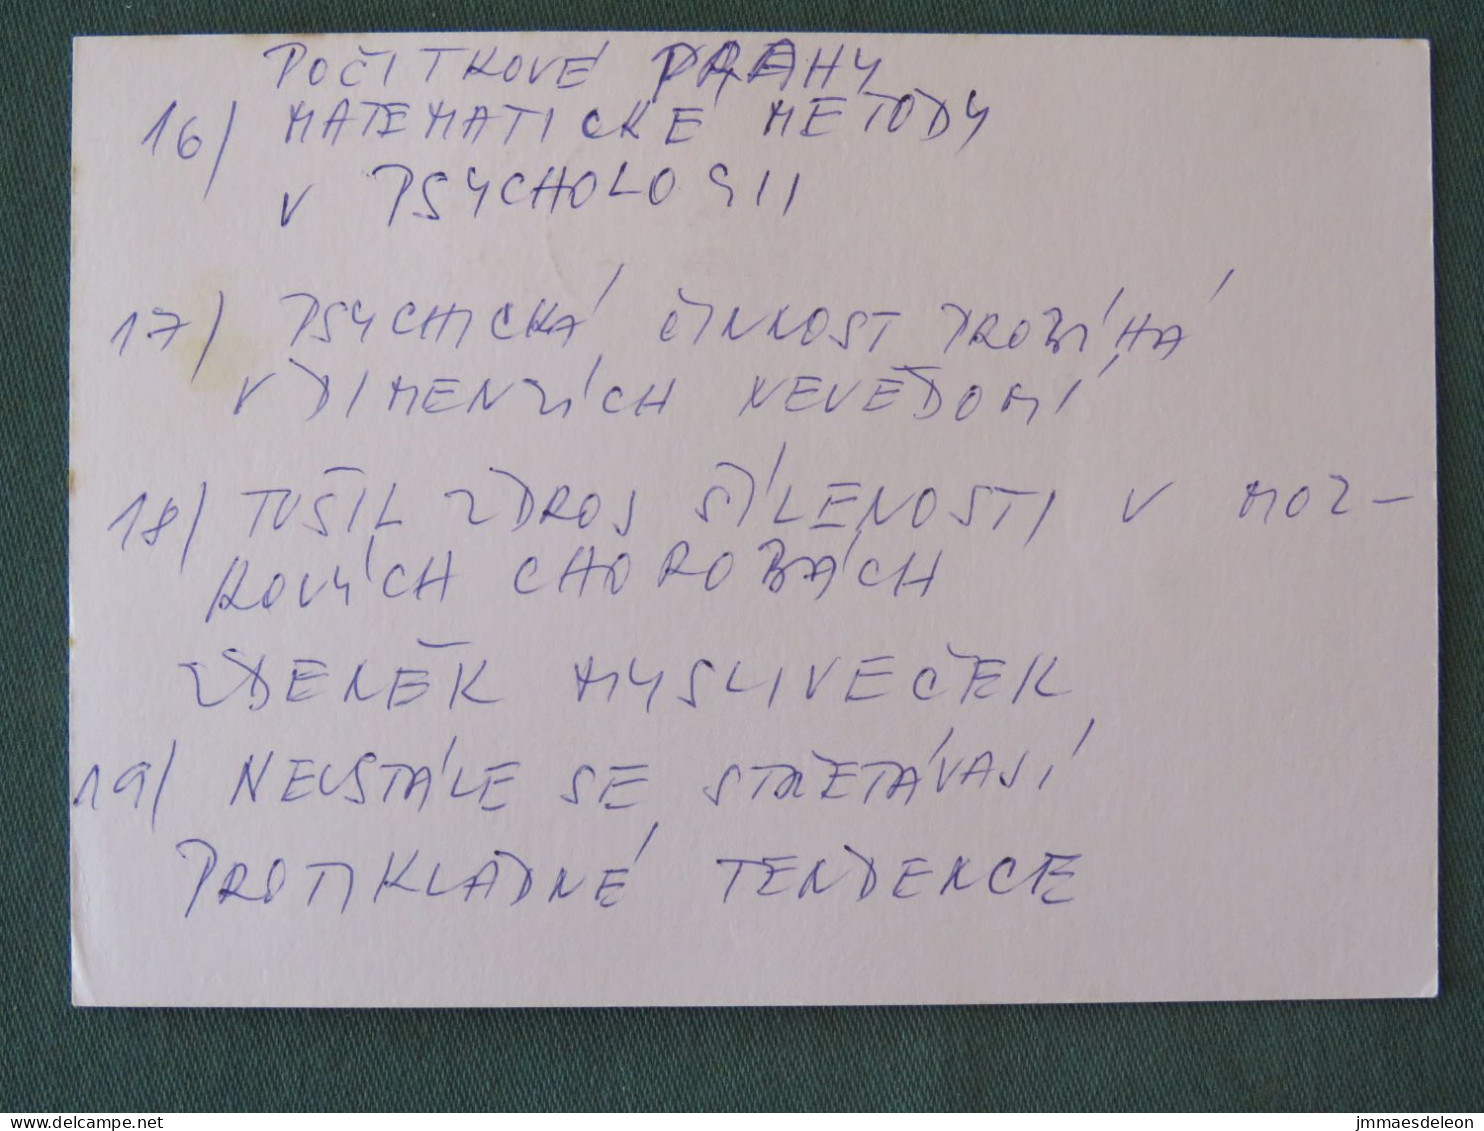 POČITKOVÉ PRAHY
16/ MATEMATICKÉ METODY
V PSYCHOLOGII
17/ PSYCHICKÁ ČINNOST PROBÍHÁ
V DIMENZÍCH NEVĚDOMÍ
18/ TUŠIL ZDROJ ŠÍLENOSTI V MOZ-
KOVÝCH CHOROBÁCH
ZDENĚK MYSLIVEČEK
19/ NEUSTÁLE SE STŘETÁVAJÍ
PROTIKLADNÉ TENDENCE
www.delcampe.net
jmmaesdeleon